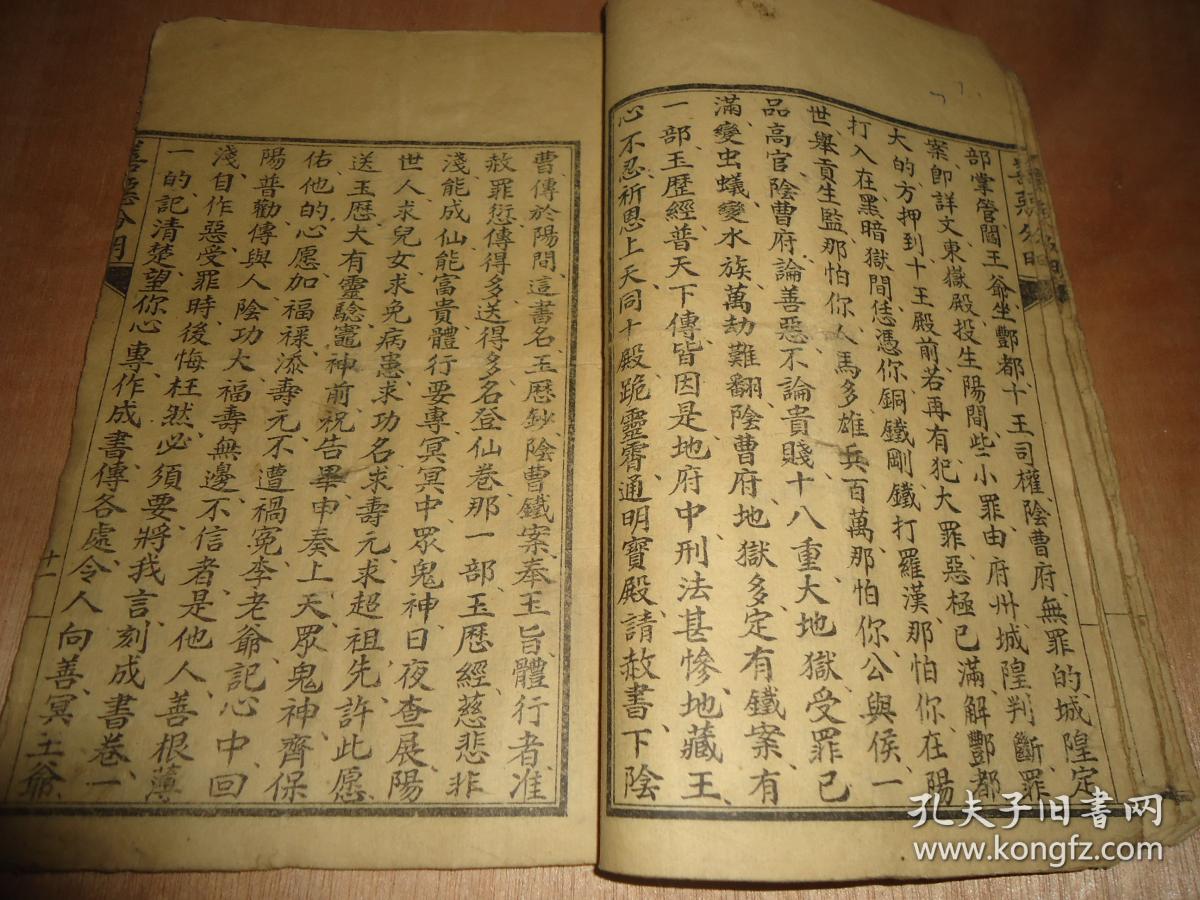 善惡分明
部掌管閻王爺坐酆都、十王司權陰曹府、無罪的城隍定
案即詳文東嶽殿、投生陽間些小罪、由府州城隍判斷、罪
大的方押到十王殿前、若再有犯大罪惡極已滿、解酆都
打入在黑暗獄間、恁憑你銅鐵剛鐵打羅漢、那怕你在陽
世舉貢生監、那怕你人馬多雄兵百萬、那怕你公與侯、一
品高官、陰曹府論善惡、不論貴賤、十八重大地獄受罪已
滿、變虫蟻變水族萬劫難翻、陰曹府地獄多定有鐵案、有
一部玉歷經普天下傳、皆因是地府中刑法甚慘、地藏王、
心不忍祈恩上天、同十殿跪靈霄通明寶殿、請赦書、下陰
曹、傳於陽間、這書名玉歷鈔、陰曹鐵案、奉玉旨、體行者、准
赦罪愆、傳得多送得多名登仙卷、那一部玉歷經慈悲非
淺、能成仙能富貴體行要專、冥冥中眾鬼神日夜查展、陽
世人求兒女求免病患、求功名求壽元求超祖先、許此愿
送玉歷大有靈驗、竈神前祝告畢申奏上天、眾鬼神齊保
佑他的心愿、加福祿添壽元不遭禍冤、李老爺記心中回
陽普勸、傳與人陰功大福壽無邊、不信者是他人善根薄
淺、自作惡受罪時後悔枉然、必須要將我言刻成書卷、一
一的記清楚、望你心專、作成書傳各處、令人向善、冥王爺
善惡分明
十一
孔夫子旧书网
www.kongfz.com